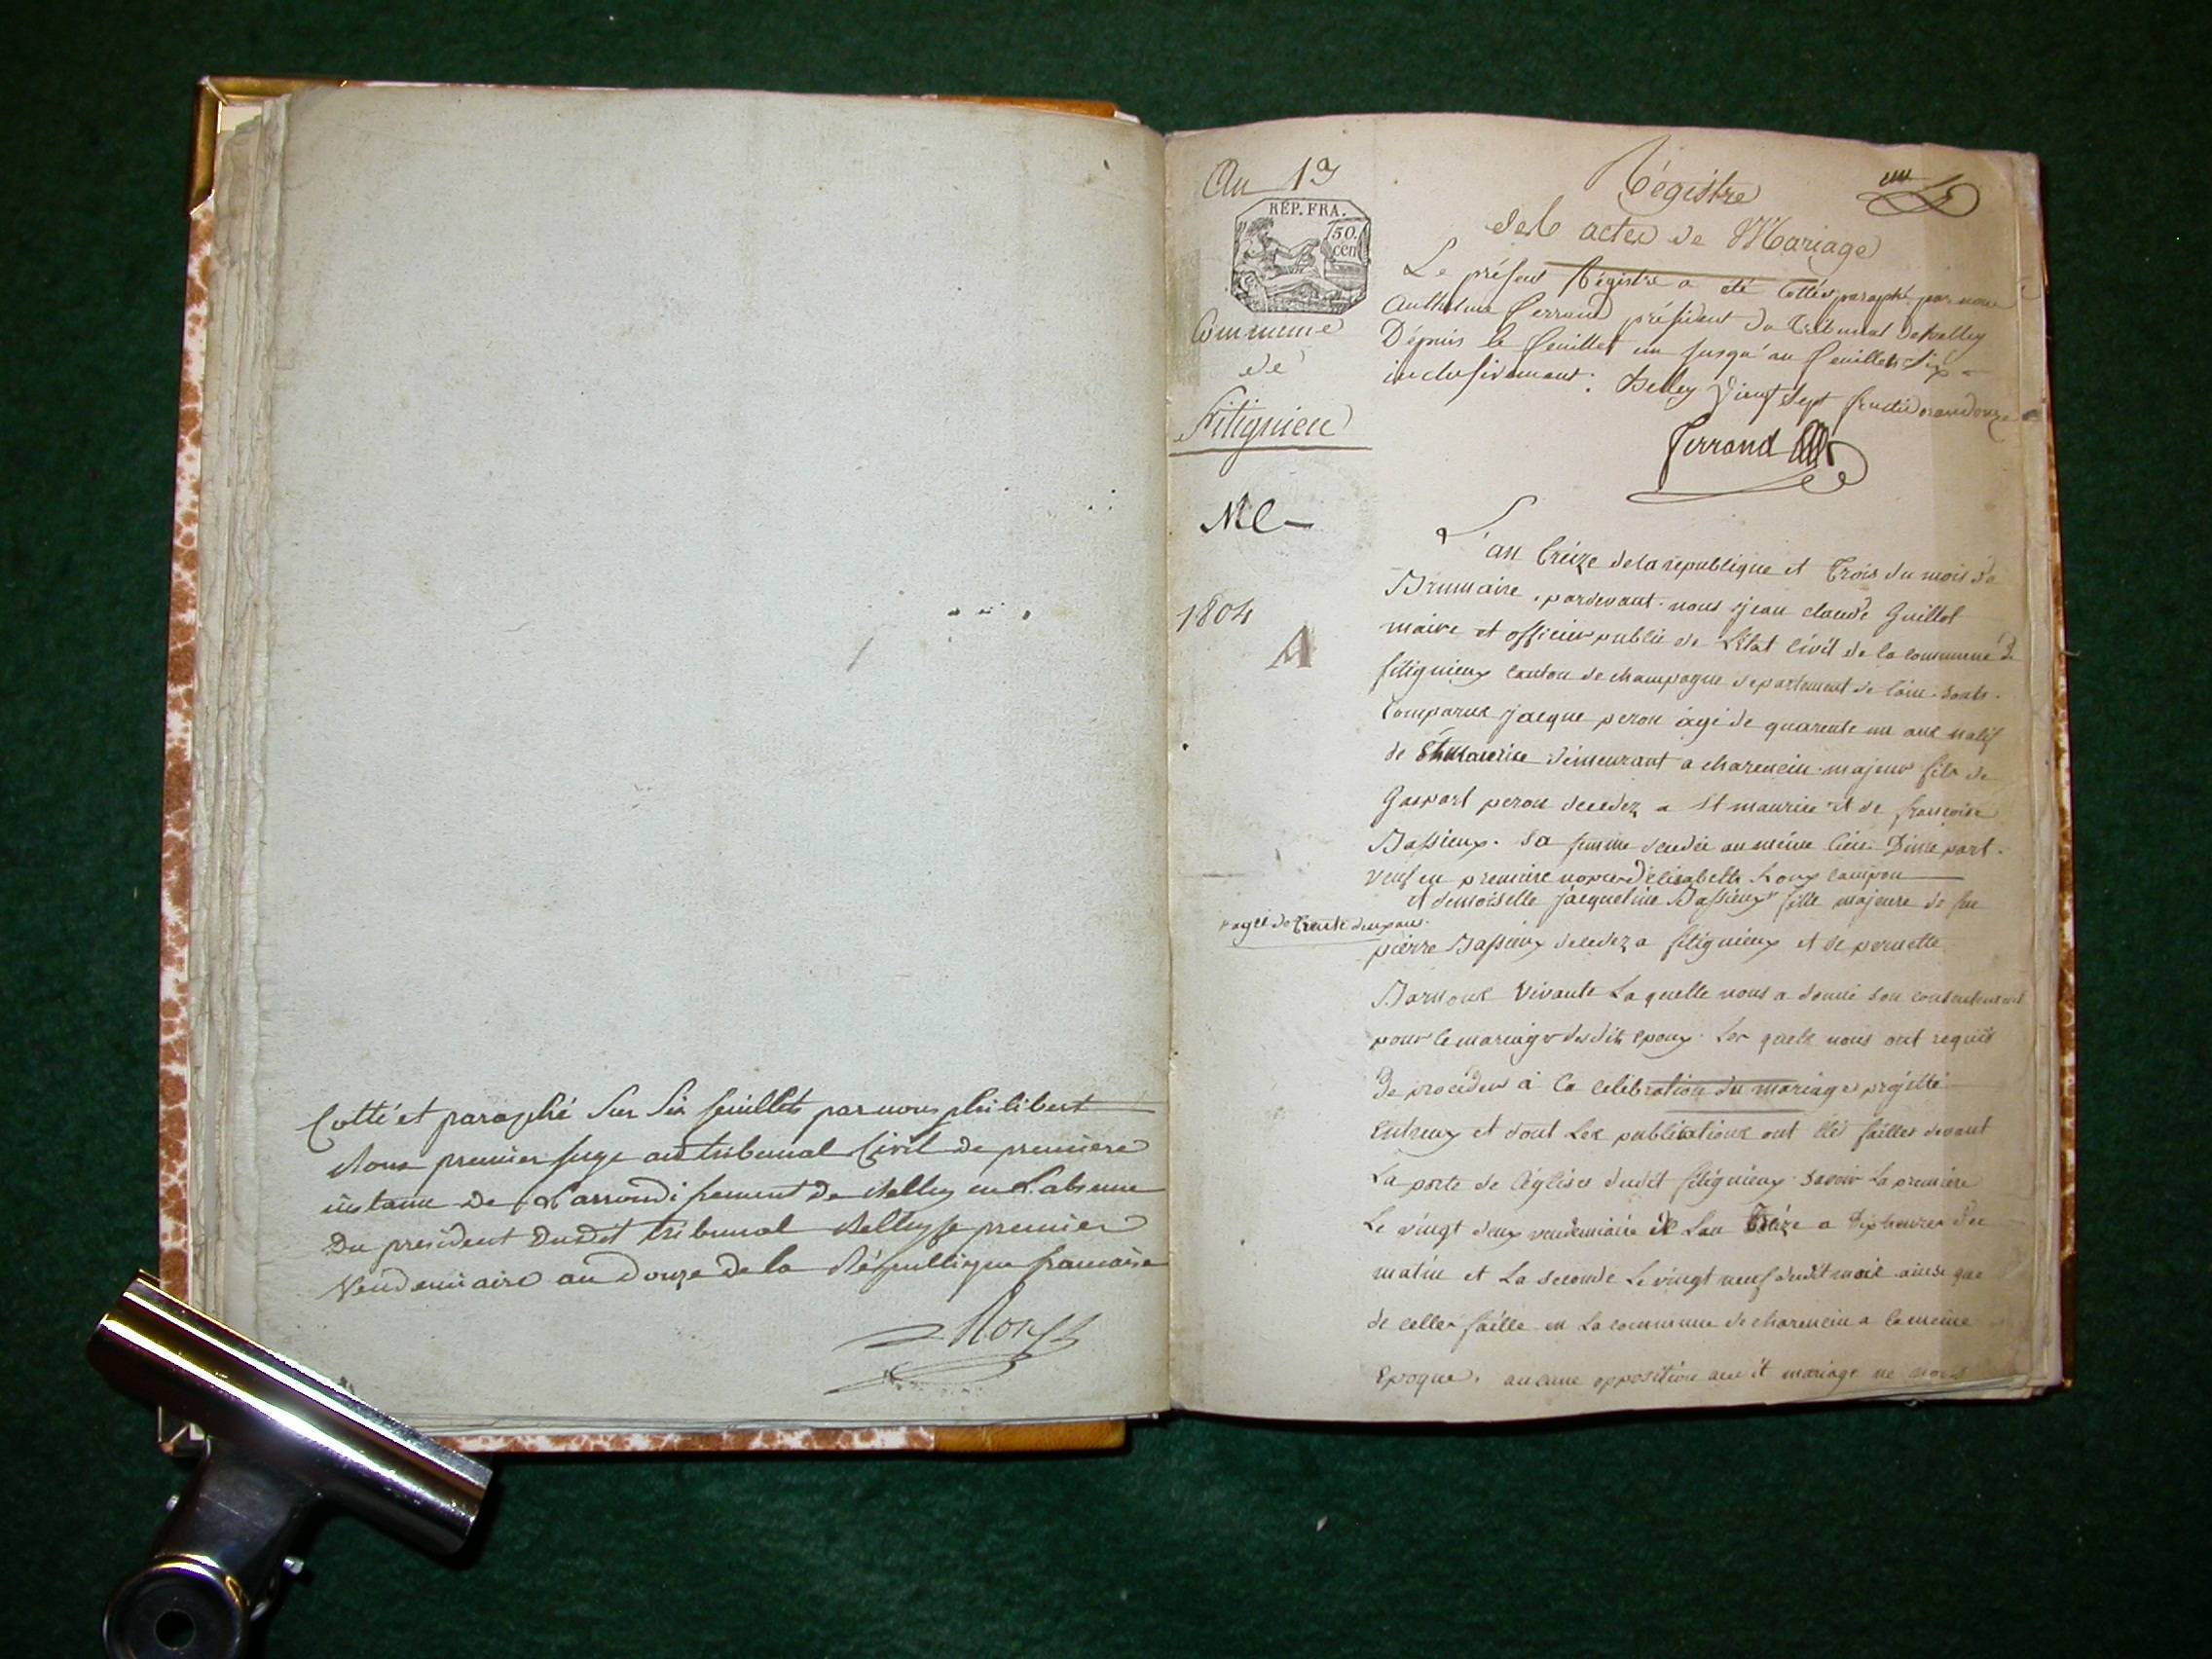 Cotté et paraphé sur six feuillets par nous philibert
Roux premier juge au tribunal Civil de premiere
instance de L'arrondissement de Belley en L'absence
du president dudit tribunal Belley le premier
Vendemiaire an douze de la République francaise
Roux
An 13
REP. FRA.
50.
cen
Commune
de
Fitignieu
NC
1804
A
un
Régistre
des actes de Mariage
Le présent Régistre a été Cotté et paraphé par nous
Anthelme Ferrand président du Tribunal de Belley
Dépuis le feuillet un jusqu'au feuillet six
inclusivement. Belley Vingt Sept fructidor an douze
Ferrand
L'an treize de la republique et Trois du mois de
Brumaire, pardevant nous jean claude Guillot
maire et officier public de L'état Civil de la commune de
fitignieux canton de champagne departement de l'ain sonts
Comparus jacque peron âgé de quarente un ans natif
de St maurice demeurant a charencin majeur fils de
Gaspart peron decedez a St maurice et de francoise
Bassieux sa femme decedée au même lieu D'une part
veuf en premiere noces d'elisabeth Roux campon
et demoiselle jacqueline Bassieux fille majeure de feu
agée de trente deux ans
pierre Bassieux decedez a fitignieux et de pernette
Barnoux Vivante Laquelle nous a donné son consentement
pour le mariage desdits epoux Les quels nous ont requis
De proceder à la celebration du mariage projetté
entreux et dont Les publications ont étés faittes devant
La porte de l'église dudit fitignieux savoir La premiere
Le vingt deux vendemiaire de Lan Treize a dix heures du
matin et La seconde Le vingt neuf dudit mois ainsi que
de celles faitte en La commune de charencin a le même
Epoque. aucune opposition audit mariage ne nous